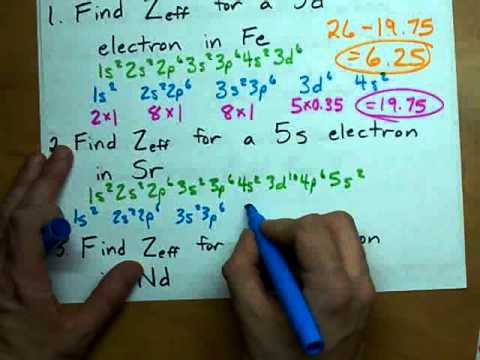 1. Find Zeff for a 3d
electron in Fe
26 - 19.75
= 6.25
1s² 2s² 2p⁶ 3s² 3p⁶ 4s² 3d⁶
1s² 2s² 2p⁶ 3s² 3p⁶ 3d⁶ 4s²
2×1 8×1 8×1 5×0.35 =19.75
2. Find Zeff for a 5s electron
in Sr
1s² 2s² 2p⁶ 3s² 3p⁶ 4s² 3d¹⁰ 4p⁶ 5s²
1s² 2s² 2p⁶ 3s² 3p⁶
3. Find Zeff for
Nd